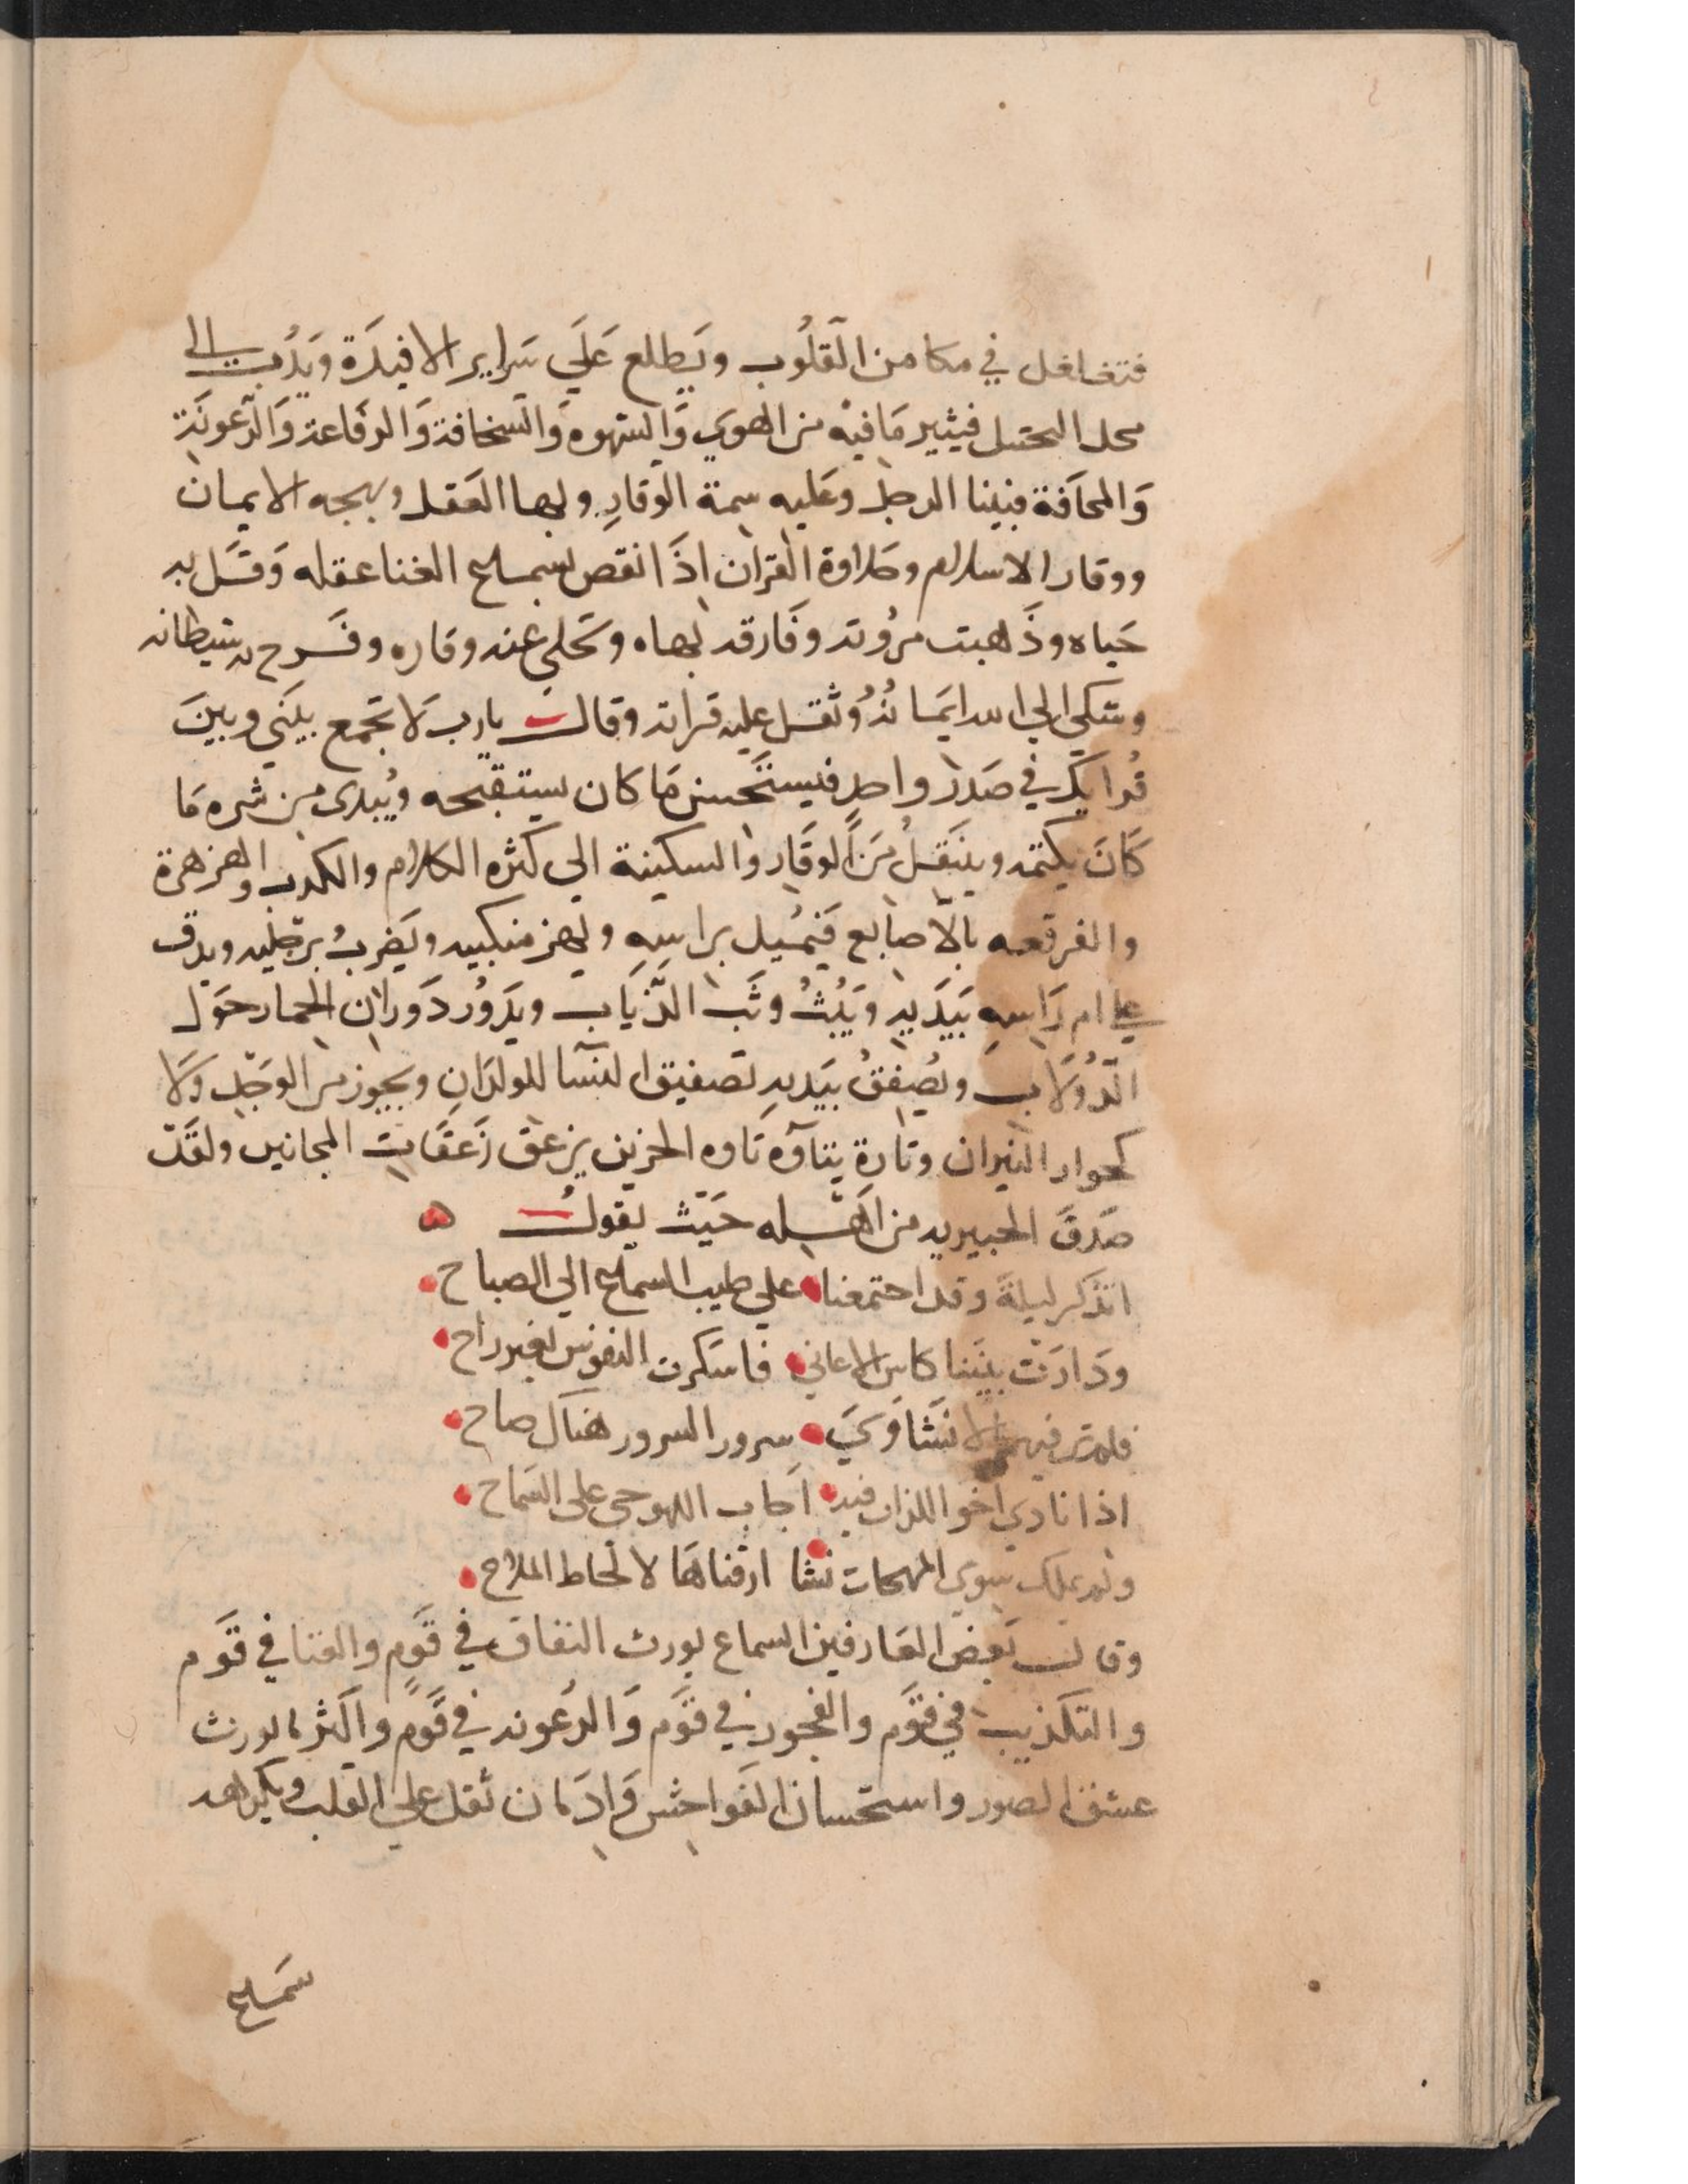 فتغلغل في مكامن القلُوب ويَطلع عَلَي سَراير الافيدَة ويَدُب الى
محل التخيل فيثير مَا فيه من الهوَي وَالشهوه وَالسخافة وَالرقاعة وَالرعونَة
وَالحماقة فبينا الرجل وعَليه سِمة الوَقارِ وبها العَقل وبهجه الايمان
ووقار الاسلام وحلاوة القران اذَا نقص بسماع الغنا عقله وَقَل به
حَياه وذَهبت مرُوته وفَارقه بهاه وتخلى عنه وقاره وفرح به شيطانه
وشكى الي الله ايمانُهُ وثقل عليه قرانه وقالت يارب لَا تجمع بينَي وبينَ
قُرانك في صَدر واحدٍ فيستَحسن مَا كان يستقبحه ويُبدى من شره مَا
كَانَ يكتمه وينَقلُ مَنَ الوقَار والسكينة الى كثره الكلام والكدب والهزهزة
والفرقعه بالاصَابع فَيَميل براسِهِ ويهز منكبيه ويَضربُ برجليه ويدق
علي ام رَاسِهِ بَيَدَيهِ ويَثُبُ وثَب الذّيَاب ويدَوُر دَوران الحمار حوَل
الدُولَاب ويُصفِقُ بيَديهِ تصفيق النسَا للولدَانِ ويجوز من الوَجَد وَلَا
كحوار الثيران وتَارة يتاوه تَاوه الحزين يزعق زَعقَات المجانين ولقَد
صَدقَ الخبير به من اهله حَيَث يقول
اتذكر ليلة وقد اجتمعنا علي طيب السماع الي الصباح
ودَارَتْ بينَنا كاس الاغاني فاسَكرت النفوس بغير راح
فلم تر فيهم الا نشَاوَي سرور السرور هنَاك صاح
اذا نادي اخو اللذات فيه اجاب اللهو حى على السَماح
ولم نملك سِوي المهجات نشا ارقناهَا لالحاط الملاح
وقالت بَعض العَارفين السماع يورث النفاق في قَومٍ والغنا في قَوم
والتكذيب في قَوَم والفجور في قَوَم وَالرعونه في قَومٍ واكَثر ما يورث
عشق الصور واستحسان الفَواحِش وَادمَان ثقل على القلب ويكرهه
سَماع